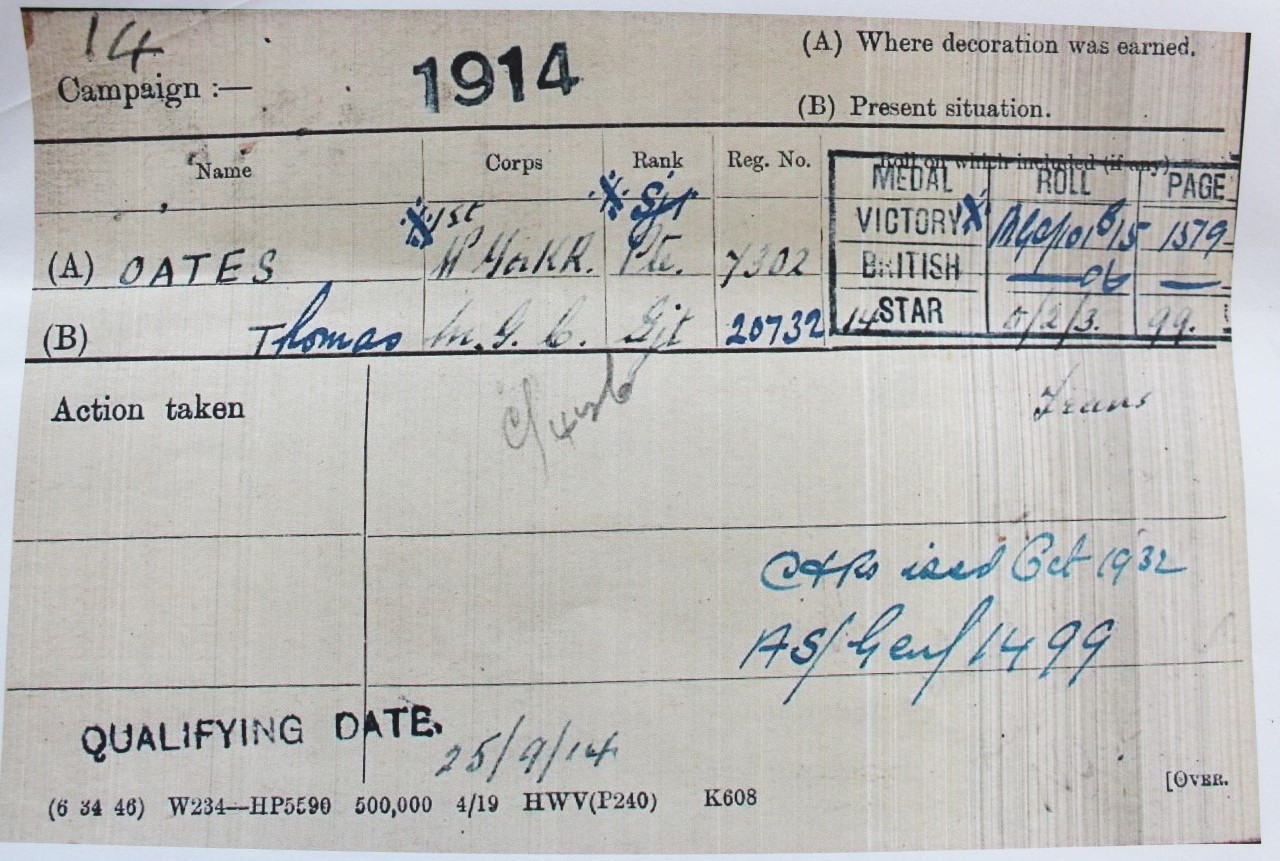 14
(A) Where decoration was earned.
Campaign :—
1914
(B) Present situation.
Name Corps Rank Reg. No. Roll on which included (if any)
MEDAL ROLL PAGE
X 1st X Sjt
VICTORY X 1579
(A) OATES W York R. Pte. 7302
BRITISH —— do ——
(B) Thomas M. G. C. Sjt 20732
14 STAR 99.
Action taken
Trans
C & Rs issd Oct 1932
AS/Gen/1499
QUALIFYING DATE.
25/9/14
[OVER.
(6 34 46) W234—HP5590 500,000 4/19 HWV(P240) K608